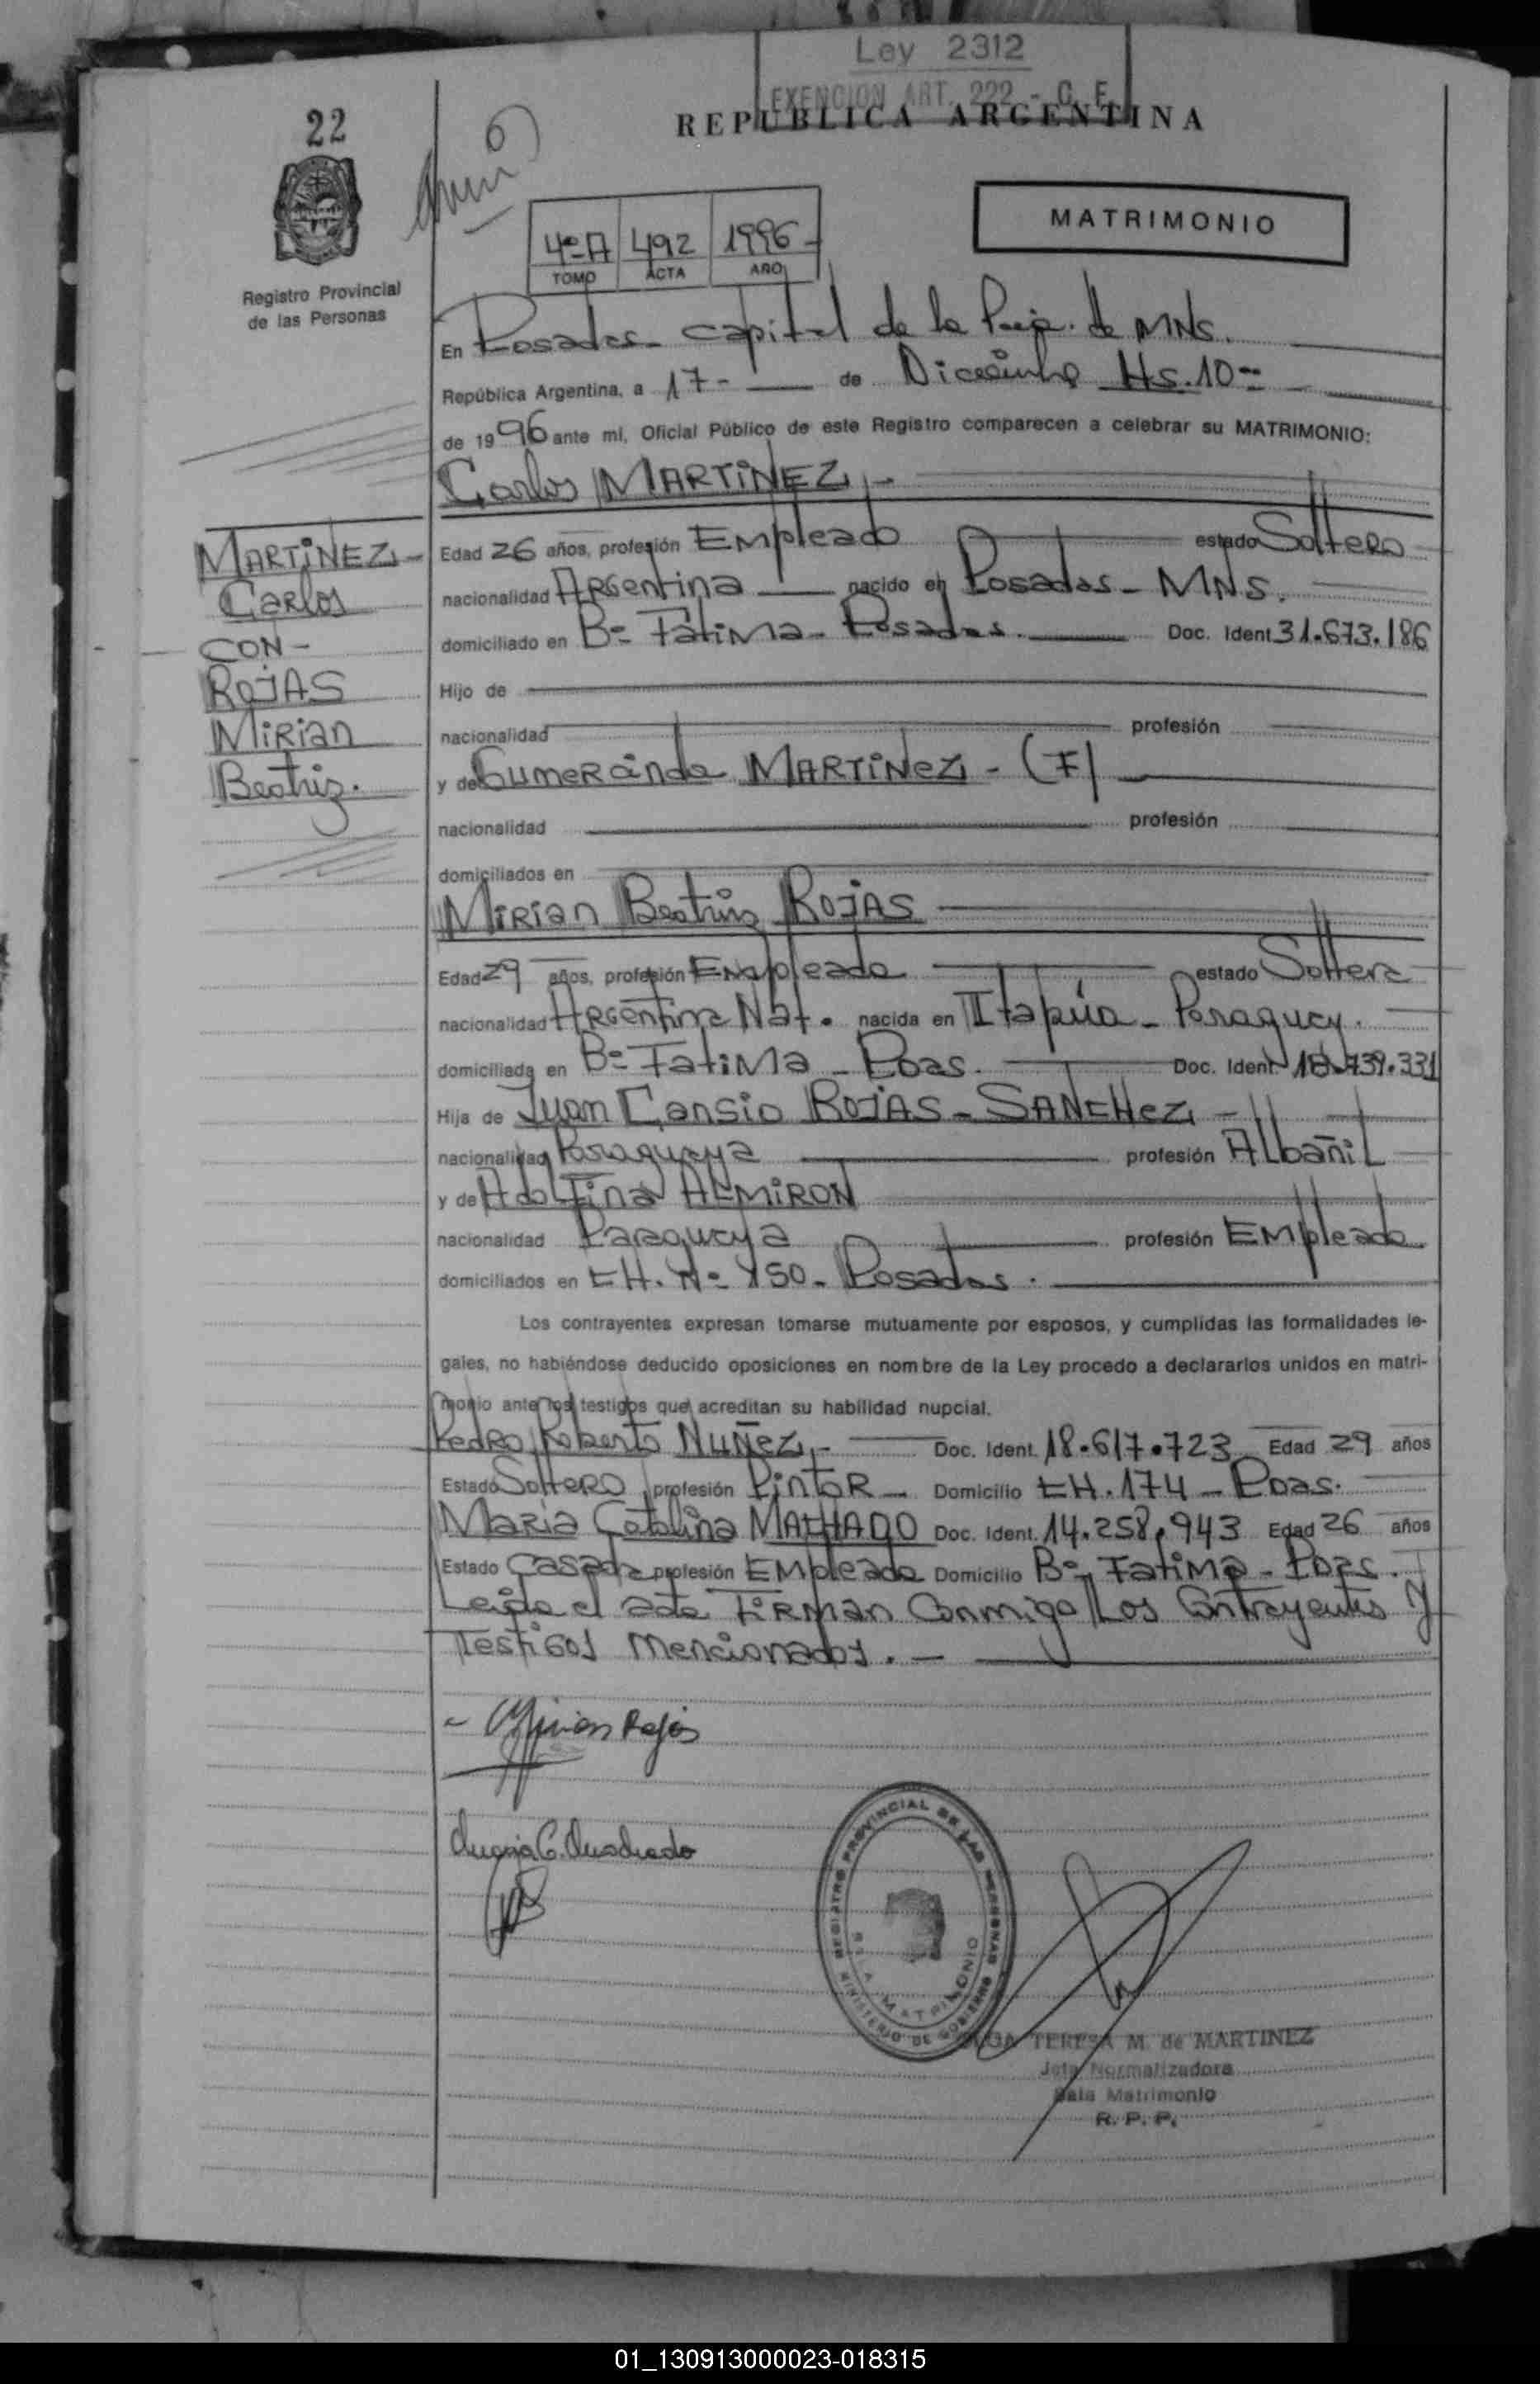 Ley 2312
EXENCION ART. 222 - C. F.
22
REPUBLICA ARGENTINA
MATRIMONIO
4º A 492 1996
TOMO ACTA AÑO
Registro Provincial
de las Personas
En Posadas capital de la Pcia. de MNS.
República Argentina, a 17 - de Diciembre Hs. 10
de 1996 ante mí, Oficial Público de este Registro comparecen a celebrar su MATRIMONIO:
Carlos MARTINEZ, -
MARTINEZ -
Carlos
CON -
ROJAS
Mirian
Beatriz.
Edad 26 años, profesión Empleado estado Soltero
nacionalidad Argentina nacido en Posadas - MNS.
domiciliado en Bº Fátima - Posadas. Doc. Ident. 31.673.186
Hijo de
nacionalidad profesión
y de Gumercinda MARTINEZ - (F)
nacionalidad profesión
domiciliados en
Mirian Beatriz ROJAS
Edad 29 años, profesión Empleada estado Soltera
nacionalidad Argentina Nat. nacida en Itapúa - Paraguay.
domiciliada en Bº Fatima - Pdas. Doc. Ident. 18.739.331
Hija de Juan Cansio ROJAS - SANCHEZ -
nacionalidad Paraguaya profesión Albañil
y de Adolfina ALMIRON
nacionalidad Paraguaya profesión Empleada
domiciliados en CH. Nº 150 - Posadas.
Los contrayentes expresan tomarse mutuamente por esposos, y cumplidas las formalidades le-
gales, no habiéndose deducido oposiciones en nombre de la Ley procedo a declararlos unidos en matri-
monio ante los testigos que acreditan su habilidad nupcial.
Pedro Roberto NUÑEZ, - Doc. Ident. 18.617.723 Edad 29 años
Estado Soltero profesión Pintor - Domicilio CH. 174 - Pdas.
Maria Catalina MACHADO Doc. Ident. 14.258.943 Edad 26 años
Estado Casada profesión Empleada Domicilio Bº Fatima - Pdas.
Leida el acta Firman Conmigo Los Contrayentes y
Testigos Mencionados. -
Mirian Rojas
REGISTRO PROVINCIAL DE LAS PERSONAS
SALA MATRIMONIO
MINISTERIO DE GOBIERNO
TERESA M. de MARTINEZ
Jefa Normalizadora
Sala Matrimonio
R. P. P.
01_130913000023-018315